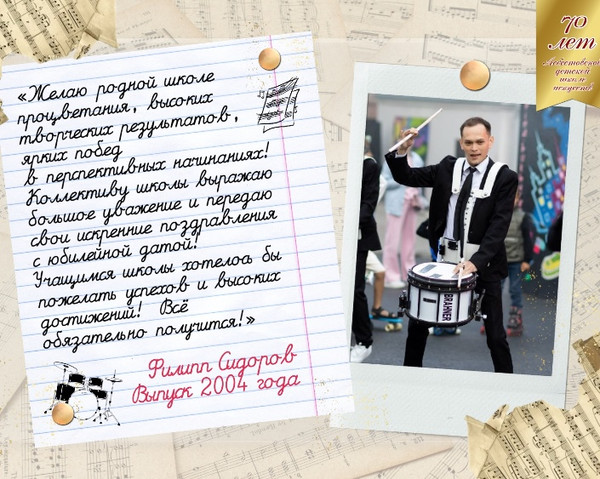 «Желаю родной школе
процветания, высоких
творческих результатов,
ярких побед
в перспективных начинаниях!
Коллективу школы выражаю
большое уважение и передаю
свои искренние поздравления
с юбилейной датой!
Учащимся школы хотелось бы
пожелать успехов и высоких
достижений! Всё
обязательно получится!»
Филипп Сидоров
Выпуск 2004 года
70
лет
детской
школе
искусств!
BRAHNER